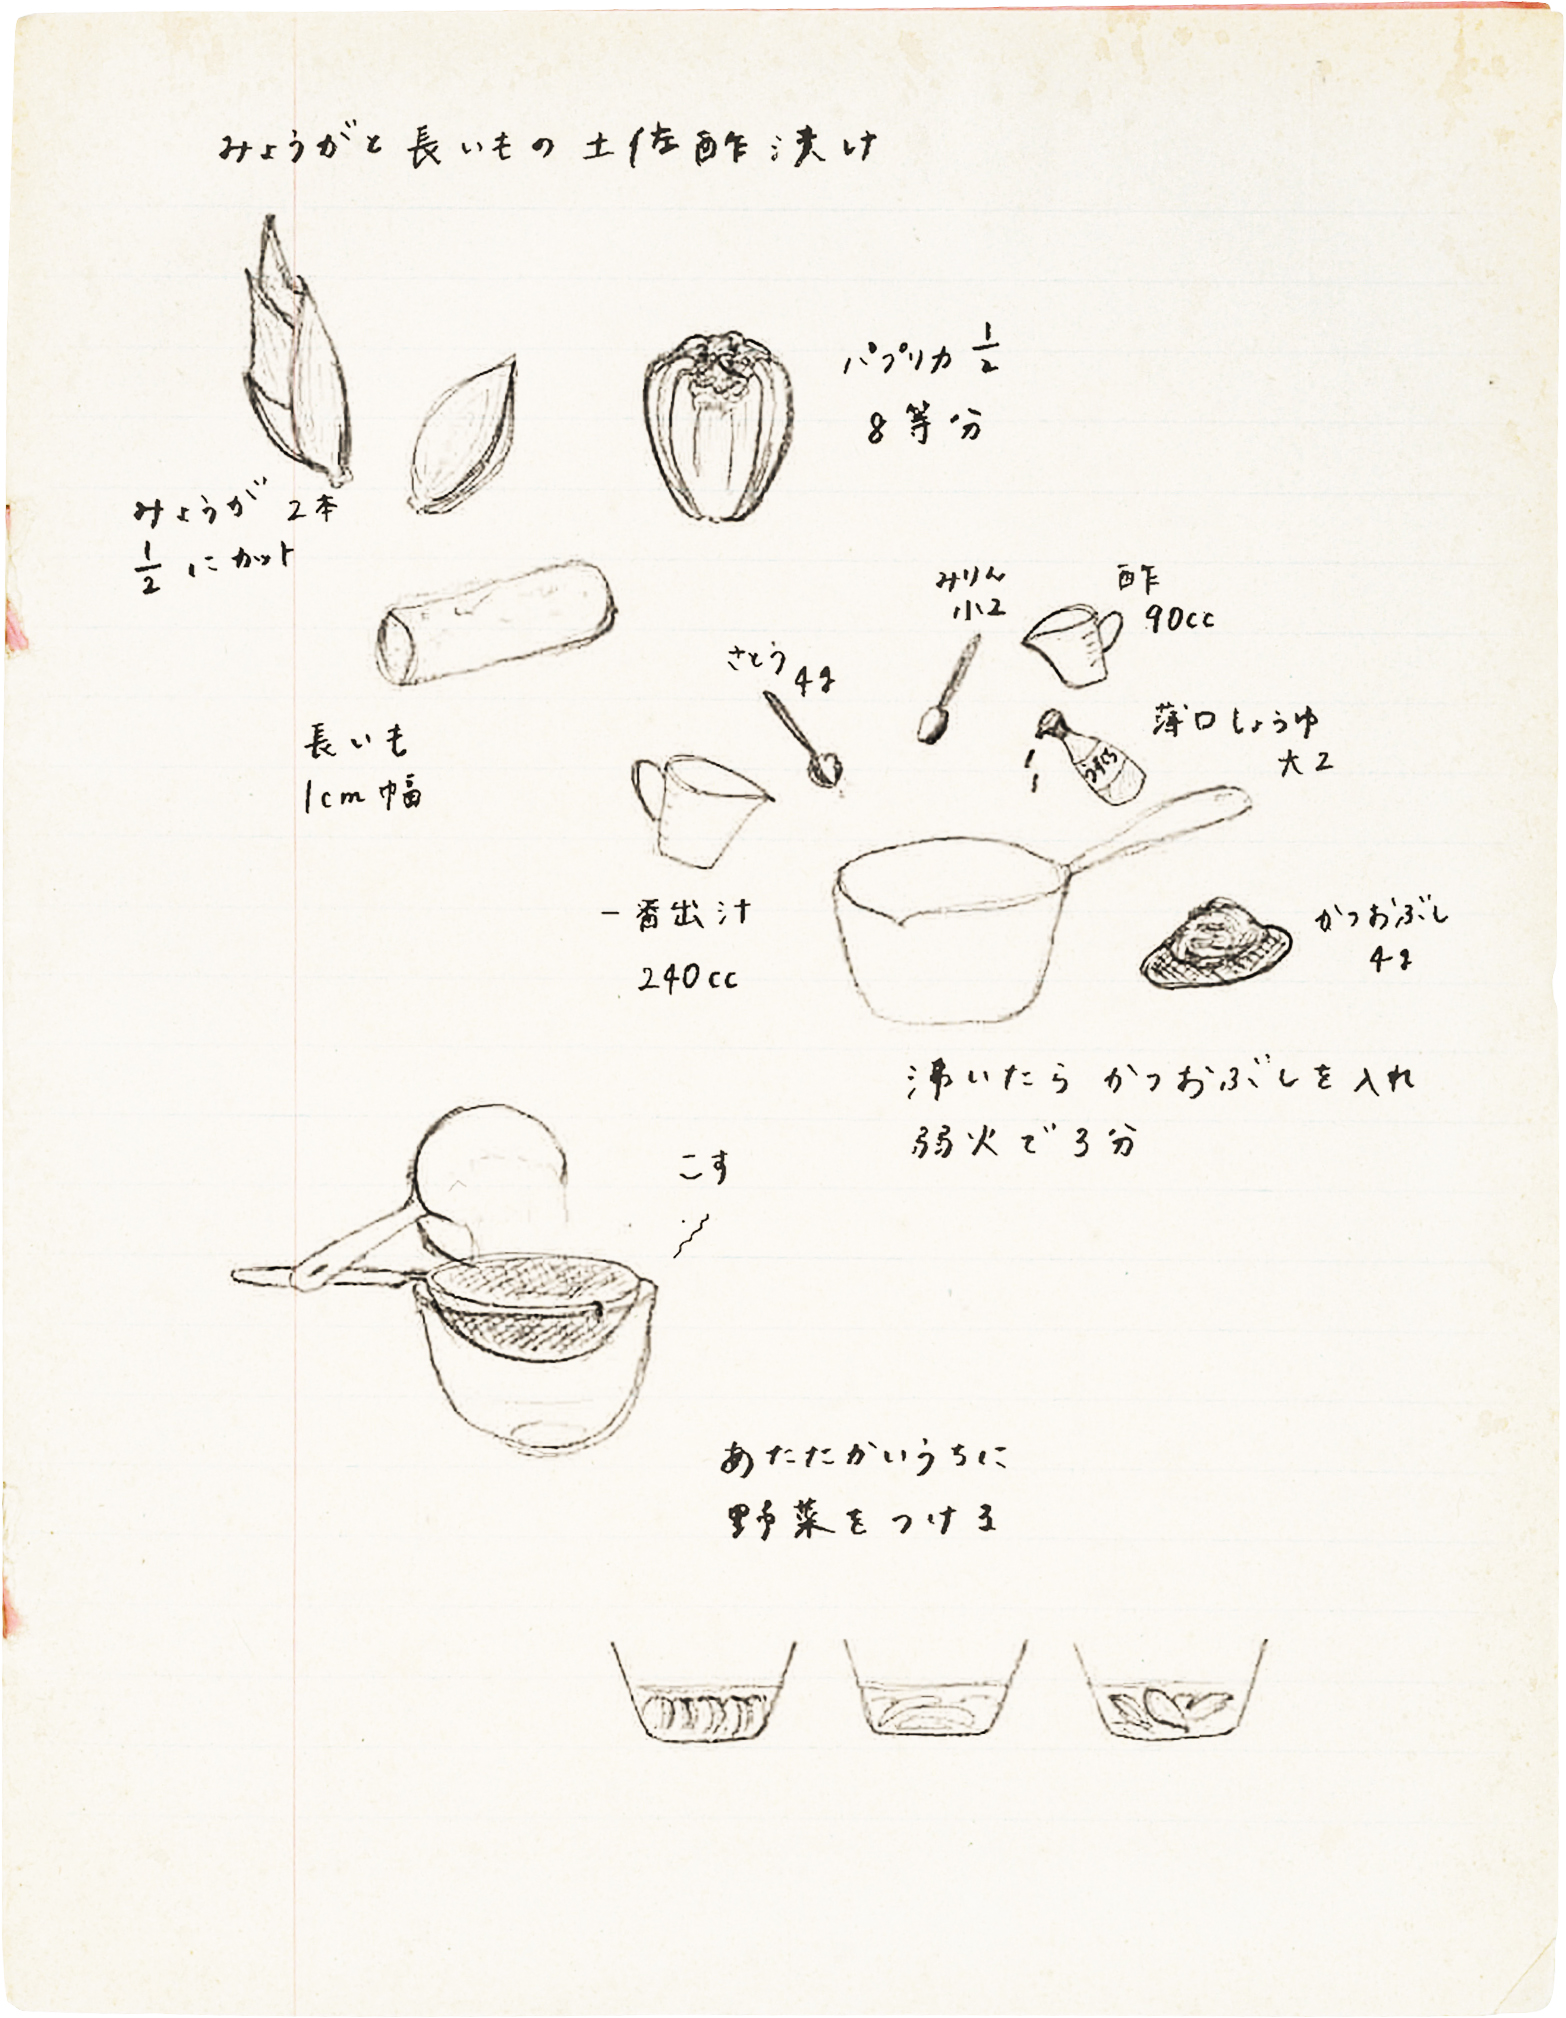 みょうがと長いもの土佐酢漬け
パプリカ 1/2
8等分
みょうが 2本
1/2 にカット
みりん
小2
酢
90cc
さとう
4g
長いも
1cm幅
薄口しょうゆ
大2
一番出汁
240cc
かつおぶし
4g
沸いたら かつおぶしを入れ
弱火で3分
こす
あたたかいうちに
野菜をつける